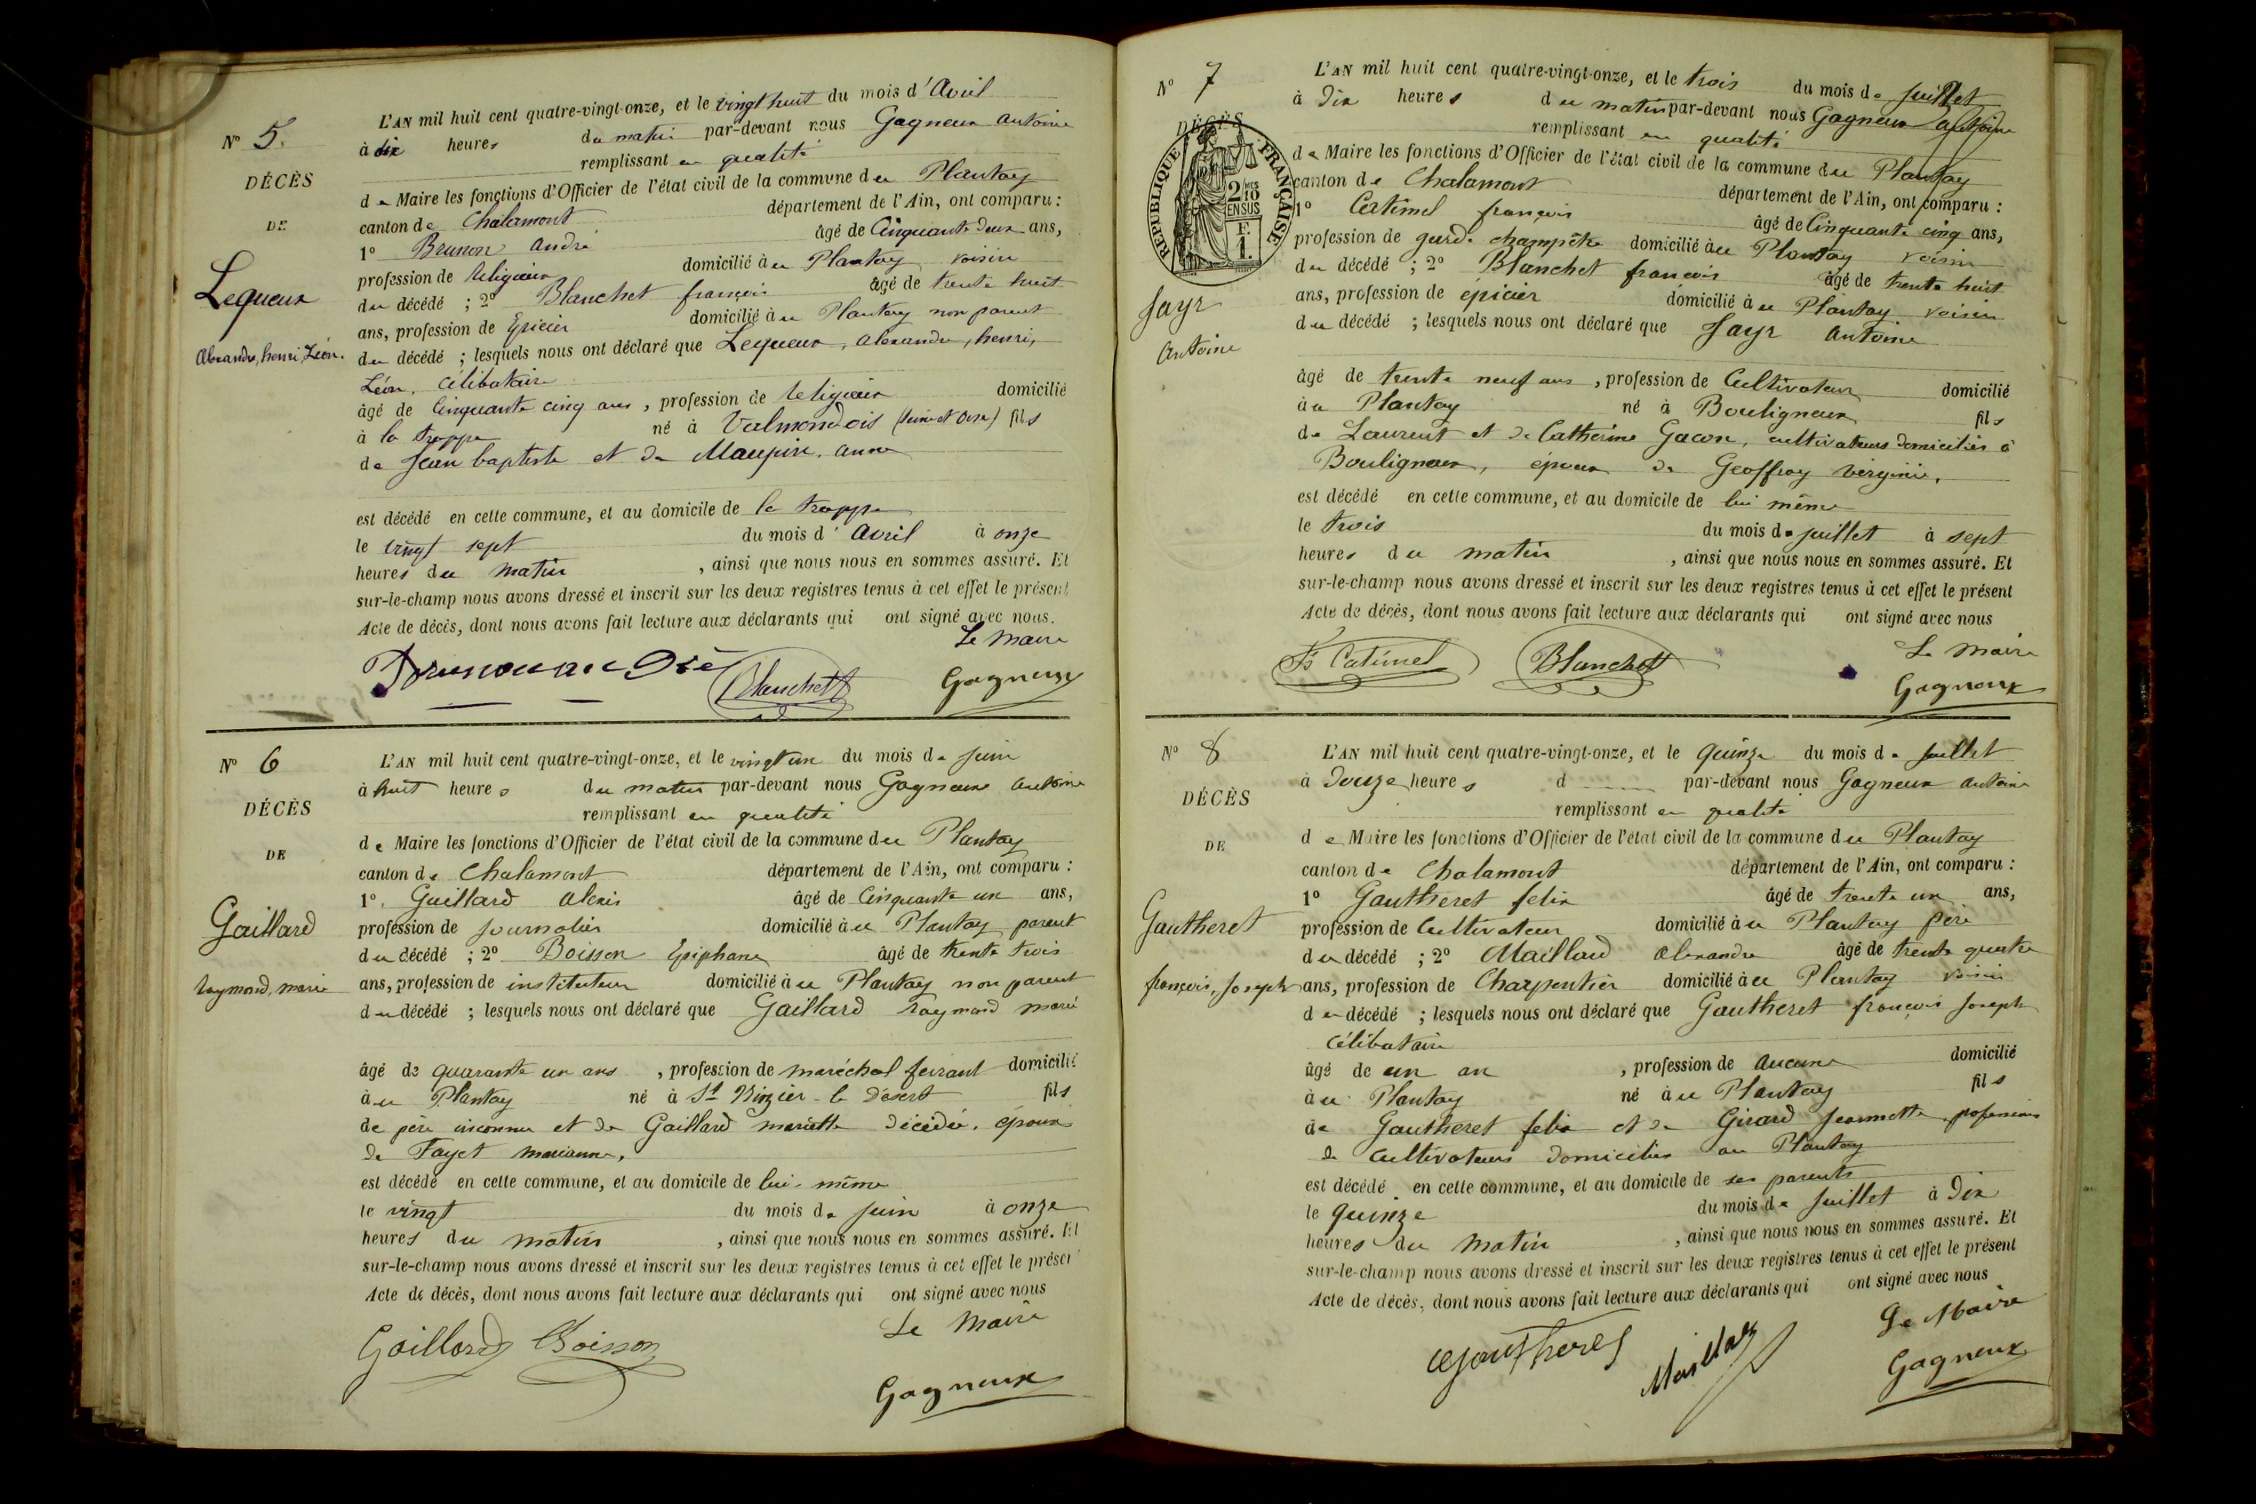 N° 5.
DÉCÈS
DE
Lequeux
Alexandre, henri, Léon.
L'AN mil huit cent quatre-vingt-onze, et le vingt huit du mois d'Avril
à dix heures du matin par-devant nous Gagneux Antoine
remplissant en qualité
de Maire les fonctions d'Officier de l'état civil de la commune du Plantay
canton de Chalamont département de l'Ain, ont comparu :
1° Brunon André âgé de Cinquante deux ans,
profession de religieux domicilié au Plantay voisin
du décédé ; 2° Blanchet françois âgé de trente huit
ans, profession de Epicier domicilié au Plantay non parent
du décédé ; lesquels nous ont déclaré que Lequeux, alexandre, henri,
Léon, célibataire
âgé de Cinquante cinq ans, profession de religieux domicilié
à la trappe né à Valmondois (Seine et Oise) fils
de Jean baptiste et de Maupin, anne
est décédé en cette commune, et au domicile de la trappe
le vingt sept du mois d'avril à onze
heures du matin, ainsi que nous nous en sommes assuré. Et
sur-le-champ nous avons dressé et inscrit sur les deux registres tenus à cet effet le présent
Acte de décès, dont nous avons fait lecture aux déclarants qui ont signé avec nous.
Le Maire
Blanchet Gagneux
N° 6
DÉCÈS
DE
Gaillard
raymond, marie
L'AN mil huit cent quatre-vingt-onze, et le vingt un du mois de Juin
à huit heures du matin par-devant nous Gagneux Antoine
remplissant en qualité
de Maire les fonctions d'Officier de l'état civil de la commune du Plantay
canton de Chalamont département de l'Ain, ont comparu :
1°. Gaillard Alexis âgé de Cinquante un ans,
profession de journalier domicilié au Plantay parent
du décédé ; 2° Boisson Epiphane âgé de trente trois
ans, profession de instituteur domicilié au Plantay non parent
du décédé ; lesquels nous ont déclaré que Gaillard raymond marie
âgé de quarante un ans, profession de maréchal ferrant domicilié
au Plantay né à St Nizier-le désert fils
de père inconnu et de Gaillard mariette décédée, époux
de Fayet marianne,
est décédé en cette commune, et au domicile de lui-même
le vingt du mois de Juin à onze
heures du matin, ainsi que nous nous en sommes assuré. Et
sur-le-champ nous avons dressé et inscrit sur les deux registres tenus à cet effet le présent
Acte de décès, dont nous avons fait lecture aux déclarants qui ont signé avec nous
Le Maire
Gaillard Boisson
Gagneux
N° 7
DÉCÈS
RÉPUBLIQUE FRANÇAISE
2/10 EN SUS
F. 1.
Jayr
Antoine
L'AN mil huit cent quatre-vingt-onze, et le trois du mois de Juillet
à dix heures du matin par-devant nous Gagneux Antoine
remplissant en qualité
de Maire les fonctions d'Officier de l'état civil de la commune du Plantay
canton de Chalamont département de l'Ain, ont comparu :
1° Catimel françois âgé de Cinquante cinq ans,
profession de garde champêtre domicilié au Plantay voisin
du décédé ; 2° Blanchet françois âgé de trente huit
ans, profession de épicier domicilié au Plantay voisin
du décédé ; lesquels nous ont déclaré que Jayr Antoine
âgé de trente neuf ans, profession de Cultivateur domicilié
au Plantay né à Bouligneux fils
de Laurent et de Catherine Gacon, cultivateurs domiciliés à
Bouligneux, époux de Geoffray Virginie,
est décédé en cette commune, et au domicile de lui même
le trois du mois de Juillet à sept
heures du matin, ainsi que nous nous en sommes assuré. Et
sur-le-champ nous avons dressé et inscrit sur les deux registres tenus à cet effet le présent
Acte de décès, dont nous avons fait lecture aux déclarants qui ont signé avec nous
Le Maire
Fs Catimel Blanchet Gagneux
N° 8
DÉCÈS
DE
Gautheret
françois, Joseph
L'AN mil huit cent quatre-vingt-onze, et le quinze du mois de Juillet
à Douze heures d par-devant nous Gagneux antoine
remplissant en qualité
de Maire les fonctions d'Officier de l'état civil de la commune du Plantay
canton de Chalamont département de l'Ain, ont comparu :
1° Gautheret felix âgé de trente un ans,
profession de Cultivateur domicilié au Plantay père
du décédé ; 2° Maillard alexandre âgé de trente quatre
ans, profession de Charpentier domicilié au Plantay voisin
du décédé ; lesquels nous ont déclaré que Gautheret françois Joseph
célibataire
âgé de un an, profession de aucune domicilié
au Plantay né au Plantay fils
de Gautheret felix et de Girard Jeannette, profession
de cultivateurs domiciliés au Plantay
est décédé en cette commune, et au domicile de ses parents
le quinze du mois de Juillet à Dix
heures du matin, ainsi que nous nous en sommes assuré. Et
sur-le-champ nous avons dressé et inscrit sur les deux registres tenus à cet effet le présent
Acte de décès, dont nous avons fait lecture aux déclarants qui ont signé avec nous
Le Maire
Maillard Gagneux